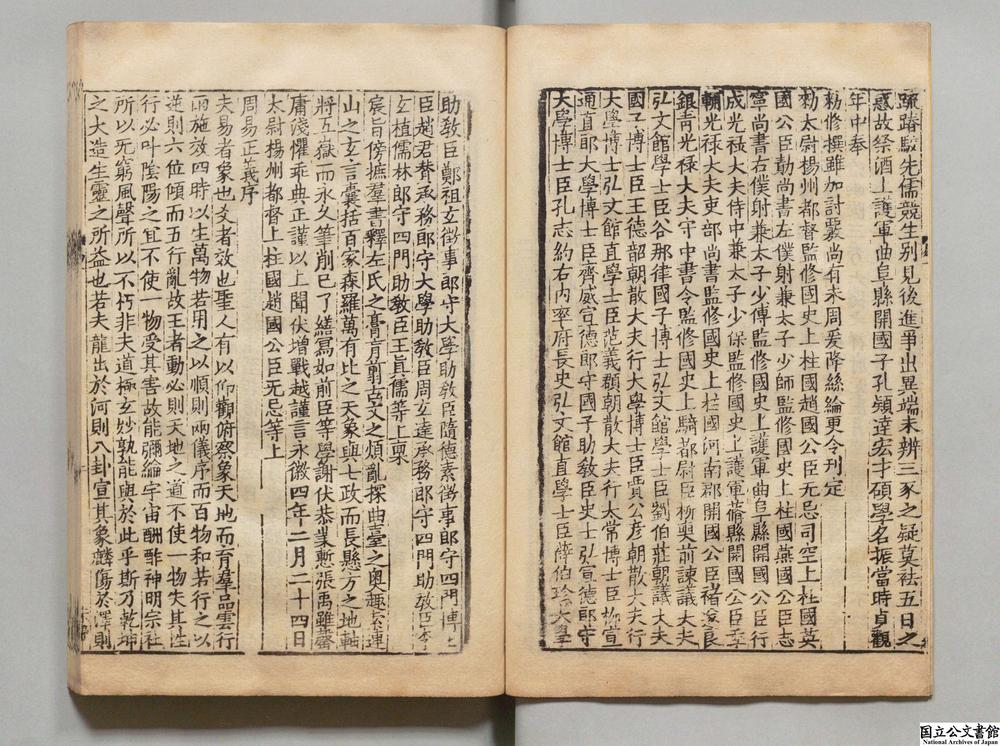 疏踳駁先儒競生别見後進爭出異端未辨三豕之疑莫袪五日之
惑故祭酒上護軍曲阜縣開國子孔穎達宏才碩學名振當時貞觀
年中奉
勑修撰雖加討覈尚有未周爰降絲綸更令刊定
勑太尉揚州都督監修國史上柱國趙國公臣无忌司空上柱國英
國公臣勣尚書左僕射兼太子少師監修國史上柱國燕國公臣志
寧尚書右僕射兼太子少傅監修國史上護軍曲阜縣開國公臣行
成光祿大夫侍中兼太子少保監修國史上護軍蓨縣開國公臣季
輔光祿大夫吏部尚書監修國史上柱國河南郡開國公臣褚遂良
銀青光祿大夫守中書令監修國史上騎都尉臣柳奭前諫議大夫
弘文館學士臣谷那律國子博士弘文館學士臣劉伯莊朝議大夫
國子博士臣王德韶朝散大夫行大學博士臣賈公彦朝散大夫行
大學博士弘文館直學士臣范義頵朝散大夫行太常博士臣柳宣
通直郎大學博士臣齊威宣德郎守國子助敎臣史士弘宣德郎守
大學博士臣孔志約右内率府長史弘文館直學士臣薛伯珍大學
助敎臣鄭祖玄徵事郎守大學助敎臣隨德素徵事郎守四門博士
臣趙君賛承務郎守大學助敎臣周玄達承務郎守四門助敎臣李
玄植儒林郎守四門助敎臣王真儒等上稟
宸旨傍摭羣書釋左氏之膏肓翦古文之煩亂探曲臺之奥趣索連
山之玄言囊括百家森羅萬有比之天象與七政而長懸方之地軸
將五嶽而永久筆削已了繕冩如前臣等學謝伏恭業慙張禹雖罄
庸淺懼乖典正謹以上聞伏增戰越謹言永徽四年二月二十四日
太尉揚州都督上柱國趙國公臣无忌等上
周易正義序
夫易者象也爻者效也聖人有以仰觀俯察象天地而育羣品雲行
雨施效四時以生萬物若用之以順則兩儀序而百物和若行之以
逆則六位傾而五行亂故王者動必則天地之道不使一物失其性
行必叶陰陽之宜不使一物受其害故能彌綸宇宙酬酢神明宗社
所以无窮風聲所以不朽非夫道極玄妙孰能與於此乎斯乃乾坤
之大造生靈之所益也若夫龍出於河則八卦宣其象麟傷於澤則
国立公文書館
National Archives of Japan